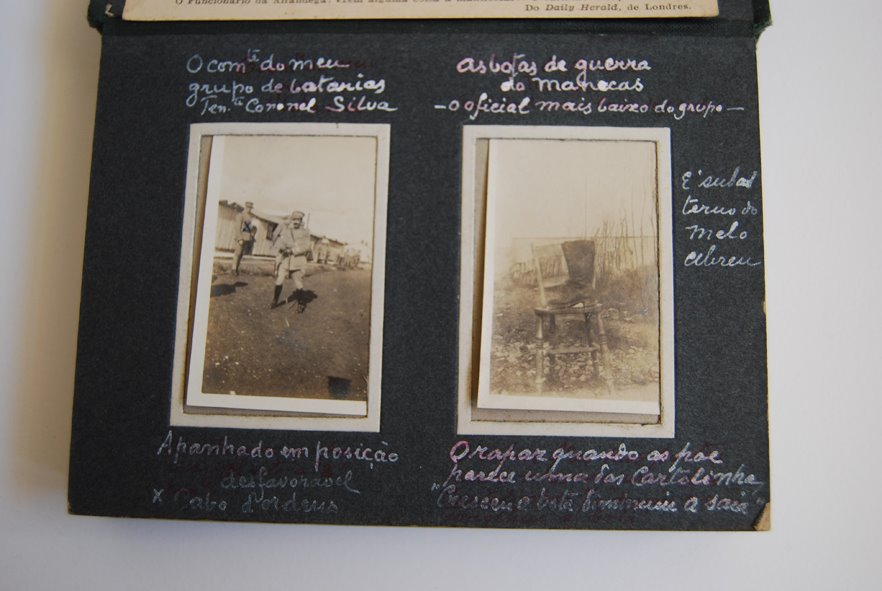 O Funcionario da Alfandega:
Do Daily Herald, de Londres.
O comte do meu
grupo de batarias
Tente Coronel Silva
As botas de guerra
do Manecas
— o oficial mais baixo do grupo —
E' subal
terno do
Melo
Abreu
Apanhado em posição
desfavoravel
x Cabo d'ordens
O rapaz quando as põe
parece uma das Cartolinha
"Cresceu a bota diminuiu a saia"